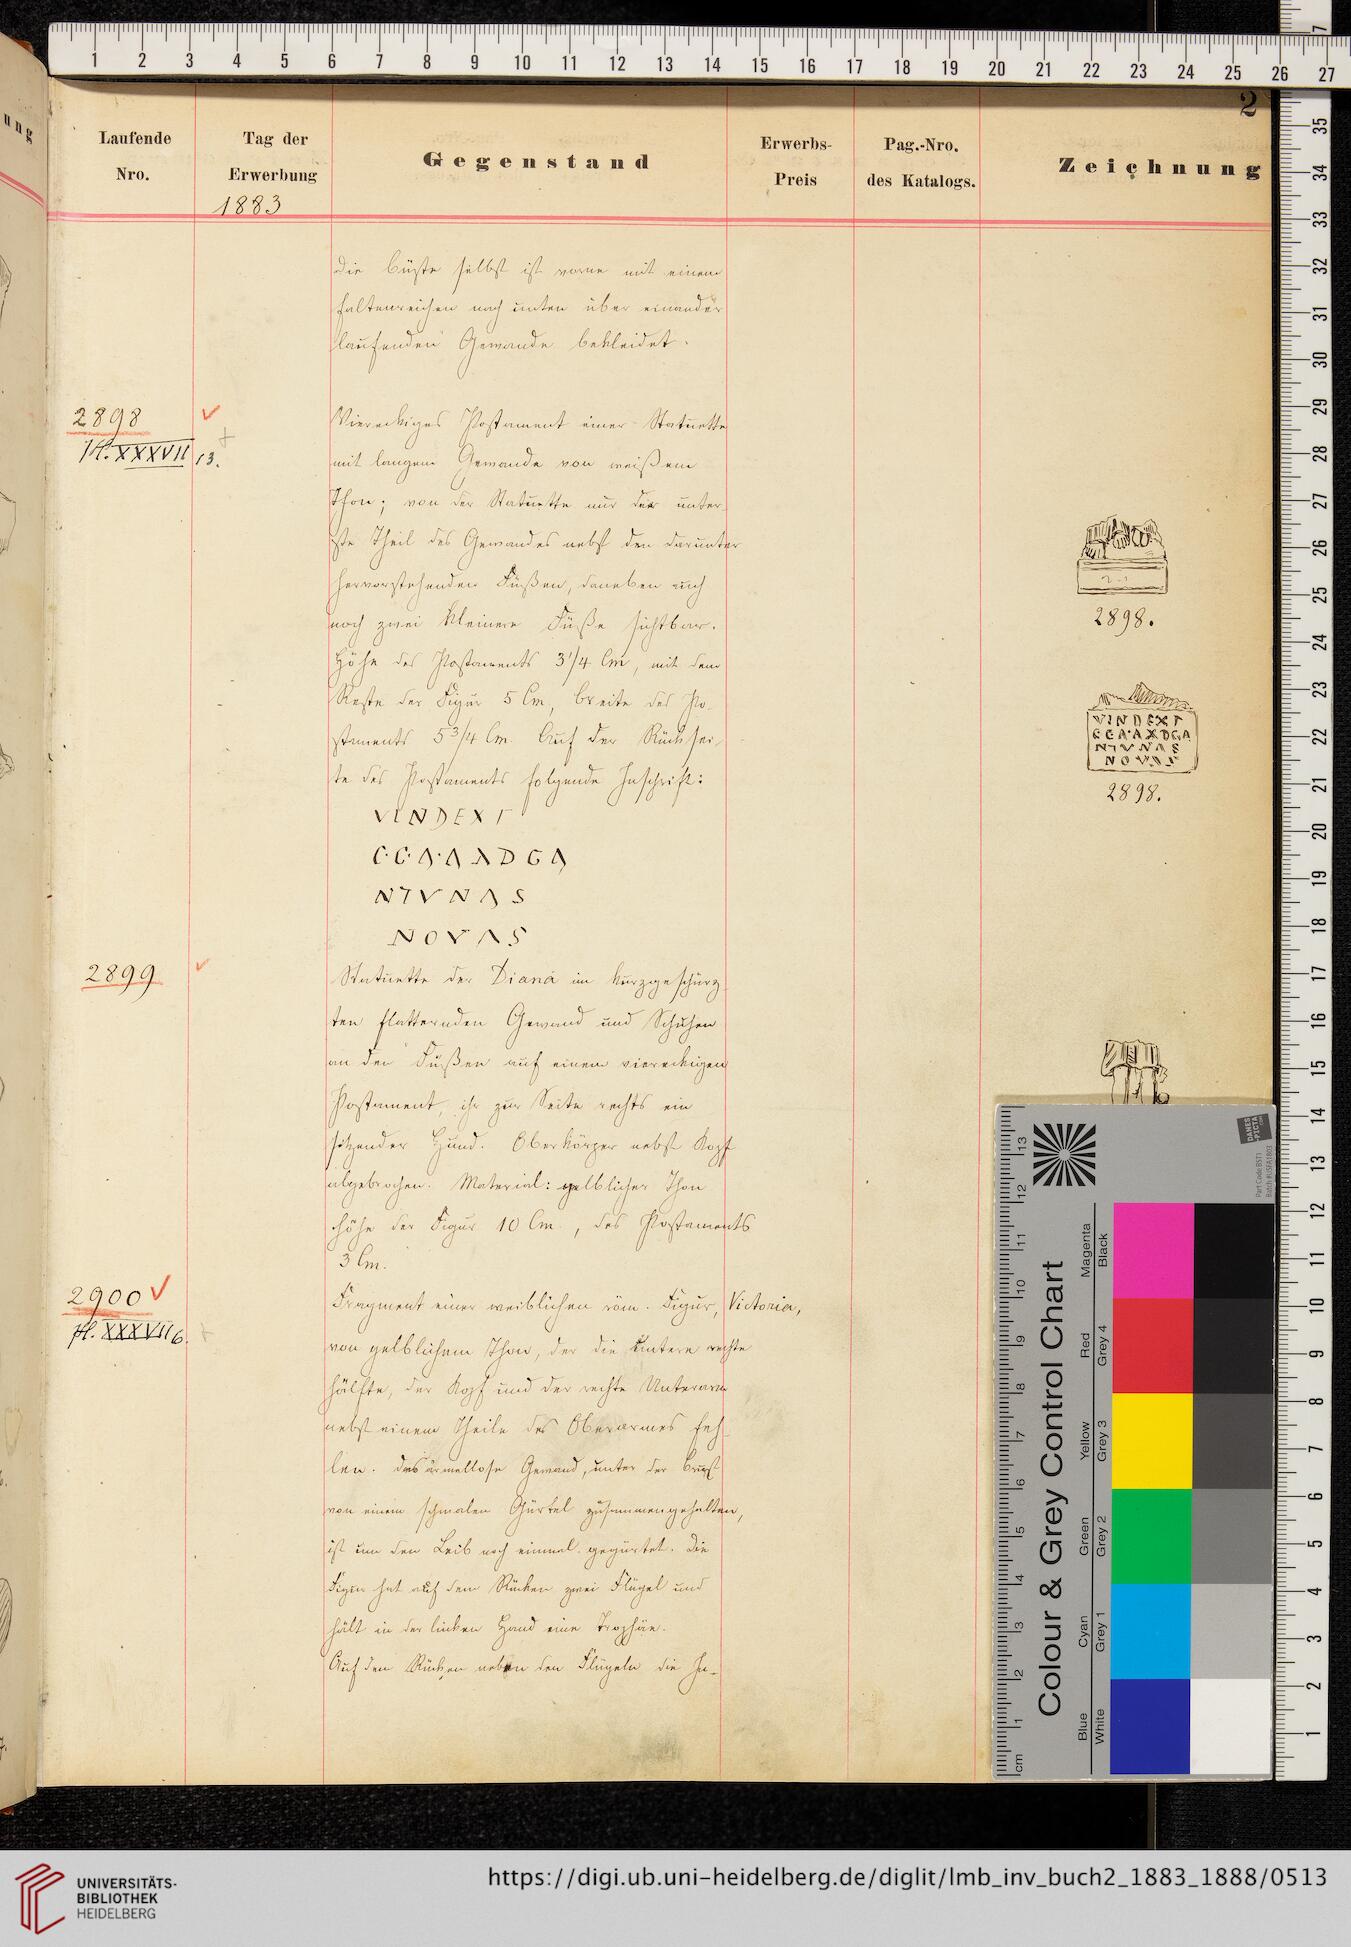 2
Laufende Nro.
Tag der Erwerbung
1883
Gegenstand
Erwerbs-Preis
Pag.-Nro. des Katalogs.
Zeichnung
Die Büste selbst ist vorne mit einem
faltenreichen nach unten über einander
laufenden Gewande bekleidet.
2898
Tfl. XXXVII 13.
Viereckiges Postament einer Statuette
mit langem Gewande von weißem
Thon; von der Statuette nur der unter-
ste Theil des Gewandes nebst den darunter
hervorstehenden Füßen, daneben auch
noch zwei kleinere Füße sichtbar.
Höhe des Postaments 3 1/4 Cm, mit dem
Reste der Figur 5 Cm, Breite des Po-
staments 5 3/4 Cm. Auf der Rücksei-
te des Postaments folgende Inschrift:
VINDEXT
C·C·A·A ADGA
NTVNAS
NOVAS
2898.
VINDEXT
CCA·AXDGA
NTVNAS
NOVAS
2898.
2899
Statuette der Diana im kurzgeschürz-
ten flatternden Gewand und Schuhen
an den Füßen auf einem viereckigen
Postament, ihr zur Seite rechts ein
sitzender Hund. Oberkörper nebst Kopf
abgebrochen. Material: gelblicher Thon
Höhe der Figur 10 Cm., des Postaments
3 Cm.
2900
Tfl. XXXVII 6.
Fragment einer weiblichen röm. Figur, Victoria,
von gelblichem Thon, der die untere rechte
Hälfte, der Kopf und der rechte Unterarm
nebst einem Theile des Oberarmes feh-
len. Das ärmellose Gewand, unter der Brust
von einem schmalen Gürtel zusammengehalten,
ist um den Leib noch einmal gegürtet. Die
Figur hat auf dem Rücken zwei Flügel und
hält in der linken Hand eine Trophäe.
Auf dem Rücken neben den Flügeln die In-
Colour & Grey Control Chart
Blue Cyan Green Yellow Red Magenta
White Grey 1 Grey 2 Grey 3 Grey 4 Black
UNIVERSITÄTS-
BIBLIOTHEK
HEIDELBERG
https://digi.ub.uni-heidelberg.de/diglit/lmb_inv_buch2_1883_1888/0513